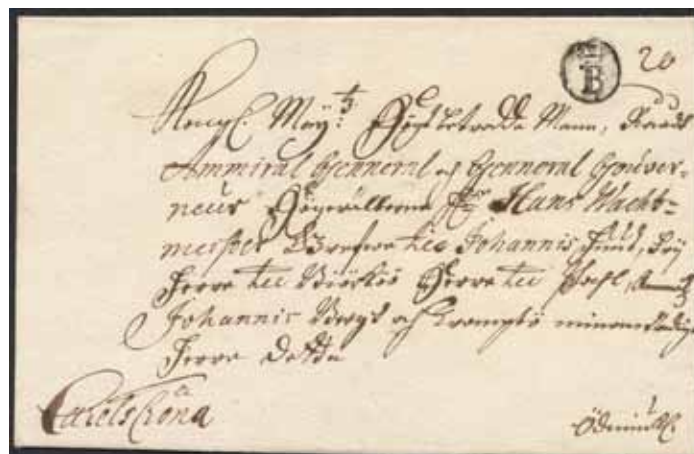 B 20
Kongl. Maÿ:tz Högtbetrodde Mann, Raadt
Ammiral Gennoral och Gennoral Gouver-
neur Högwälborne H:r Hans Wacht-
meister Grefwe till Johannis huus, frÿ
Herre till Biörkö Herre till
Johannis och minom
Herre Detta
Carelscrona
Ödmiukl.